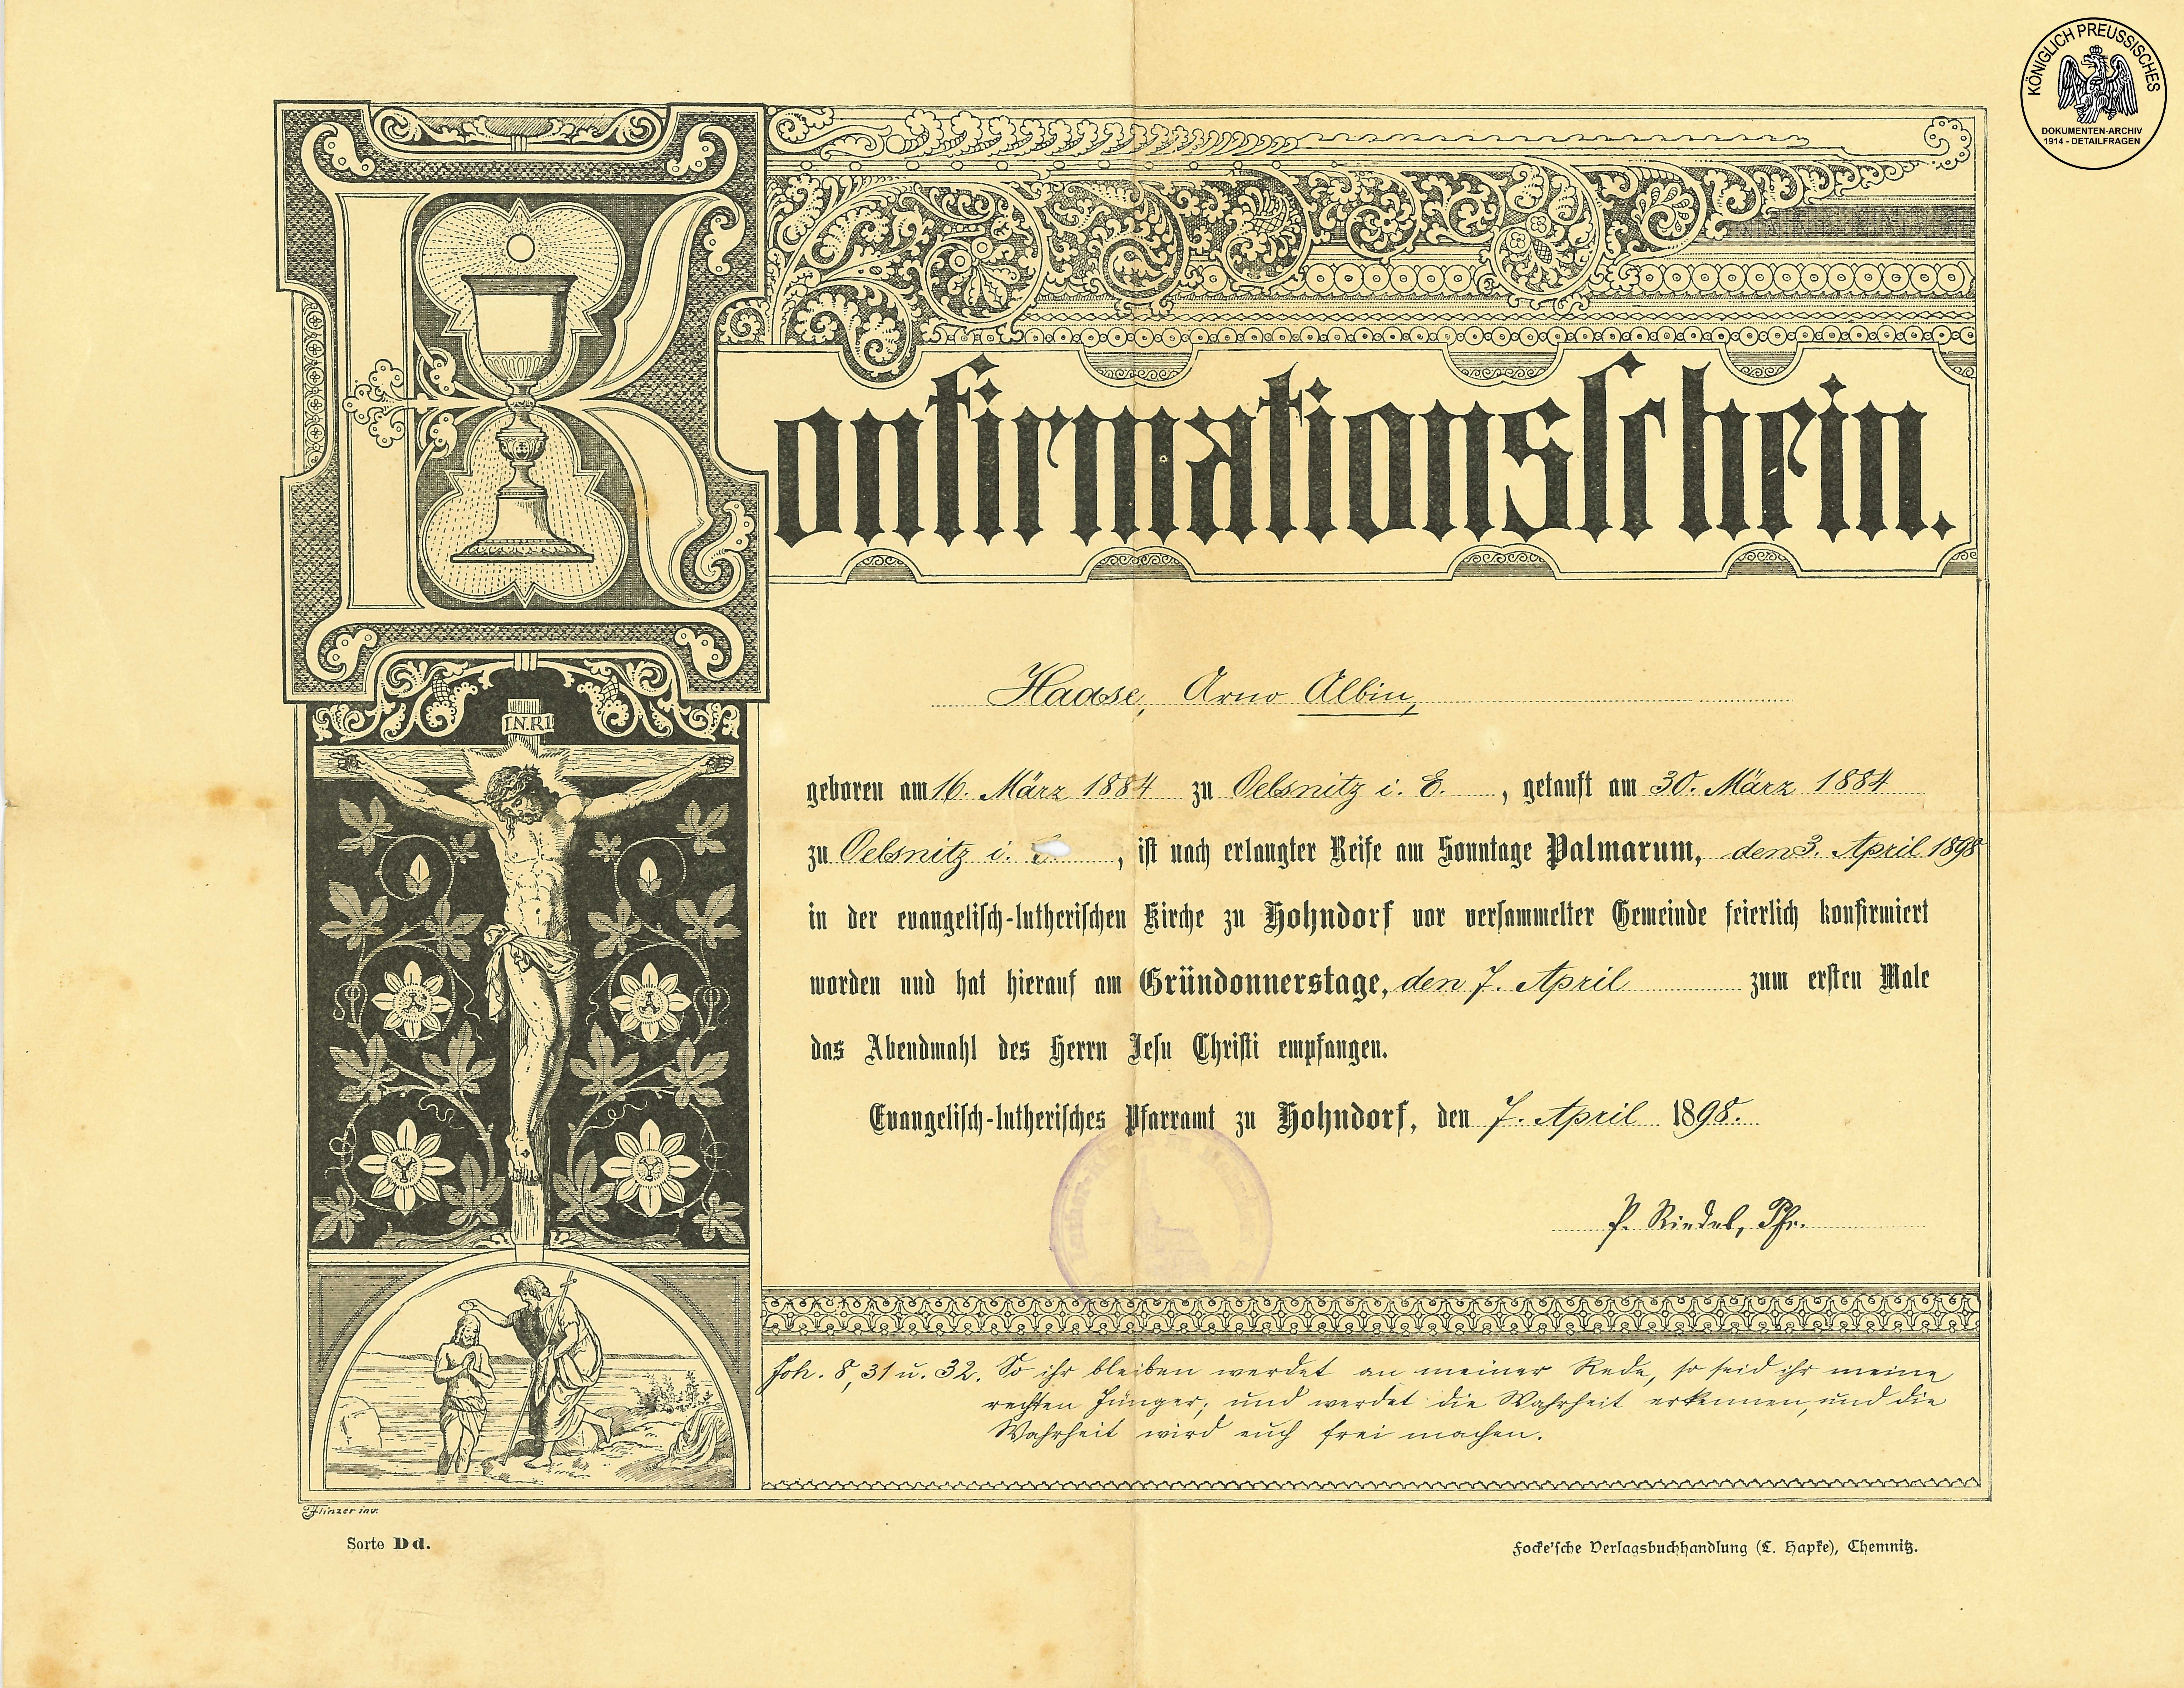 KÖNIGLICH PREUSSISCHES
DOKUMENTEN-ARCHIV
1914 - DETAILFRAGEN
Konfirmationsschein.
I.N.R.I
Haase, Arno Albin,
geboren am 16. März 1884 zu Oelsnitz i. E. , getauft am 30. März 1884
zu Oelsnitz i. E. , ist nach erlangter Reife am Sonntage Palmarum, den 3. April 1898
in der evangelisch-lutherischen Kirche zu Hohndorf vor versammelter Gemeinde feierlich konfirmiert
worden und hat hierauf am Gründonnerstage, den 7. April zum ersten Male
das Abendmahl des Herrn Jesu Christi empfangen.
Evangelisch-lutherisches Pfarramt zu Hohndorf, den 7. April 1898.
P. Riedel, Pfr.
Joh. 8, 31 u. 32. So ihr bleiben werdet an meiner Rede, so seid ihr meine
rechten Jünger; und werdet die Wahrheit erkennen, und die
Wahrheit wird euch frei machen.
Flinzer inv.
Sorte Dd.
Focke'sche Verlagsbuchhandlung (C. Hapke), Chemnitz.